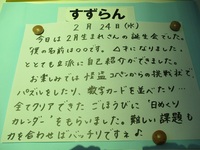 すずらん
2月24日(水)
今日は2月生まれさんの誕生会でした。
"僕の名前は○○です。△才になりました。"
ととても上手に自己紹介ができました。
お楽しみでは怪盗コペンからの挑戦状で、
パズルをしたり、数字カードを並べたり…
全てクリアできた ごほうびに"日めくり
カレンダー"をもらいました。難しい課題も
力を合わせばバッチリですネ♪